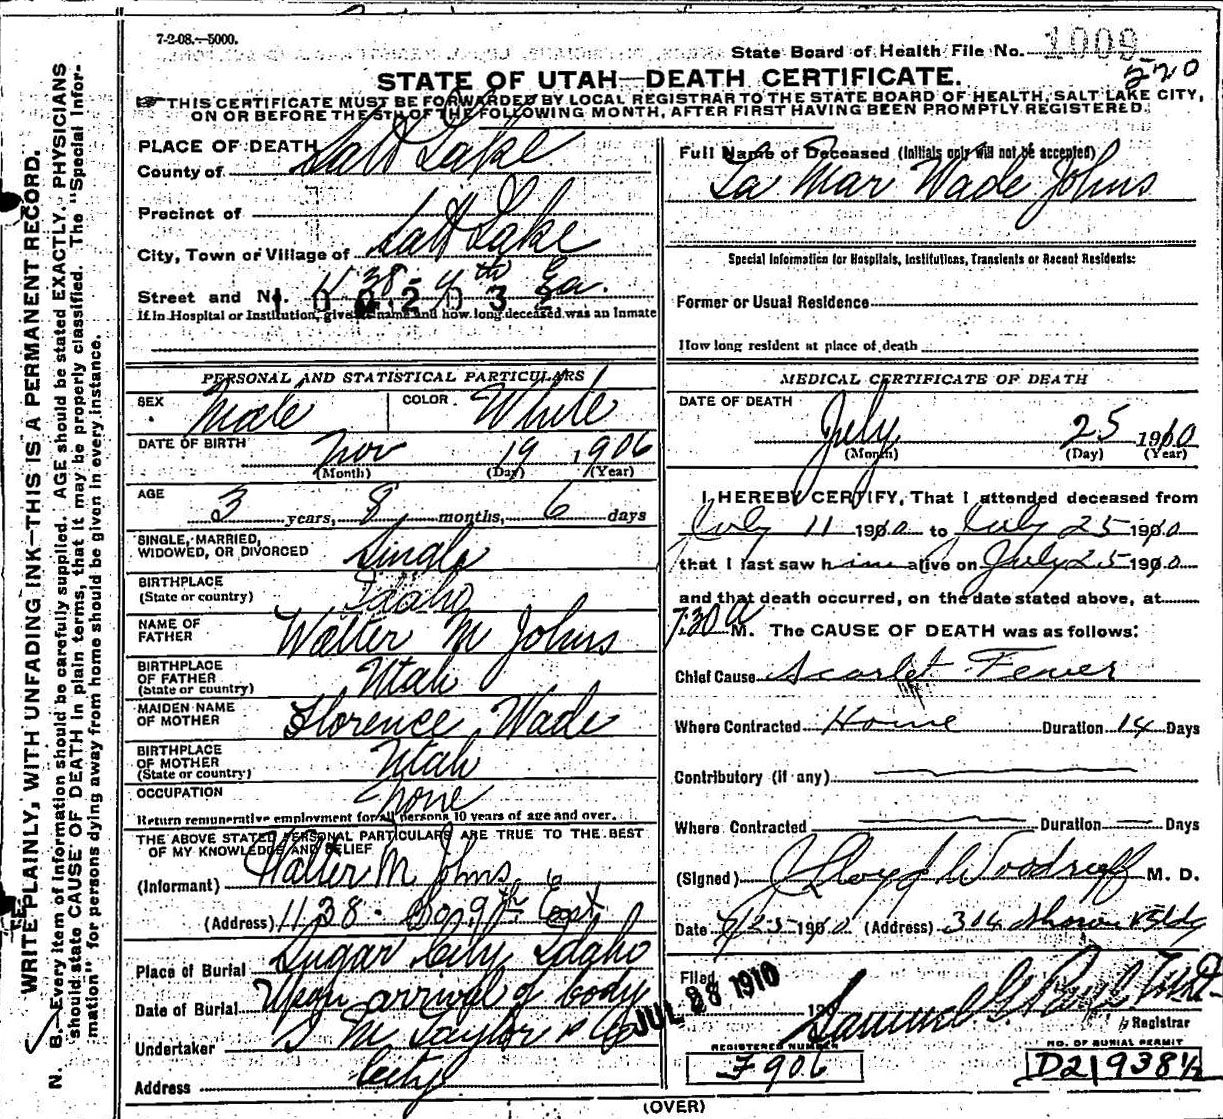 7-2-08.—5000.
State Board of Health File No. 1009
220
STATE OF UTAH—DEATH CERTIFICATE.
THIS CERTIFICATE MUST BE FORWARDED BY LOCAL REGISTRAR TO THE STATE BOARD OF HEALTH, SALT LAKE CITY,
ON OR BEFORE THE 5TH OF THE FOLLOWING MONTH, AFTER FIRST HAVING BEEN PROMPTLY REGISTERED.
WRITE PLAINLY, WITH UNFADING INK—THIS IS A PERMANENT RECORD.
N. B.—Every item of information should be carefully supplied. AGE should be stated EXACTLY. PHYSICIANS
should state CAUSE OF DEATH in plain terms, that it may be properly classified. The "Special Infor-
mation" for persons dying away from home should be given in every instance.
PLACE OF DEATH
County of Salt Lake
Precinct of
City, Town or Village of Salt Lake
Street and No. 1138 - 9th Ea.
If in Hospital or Institution, give its name and how long deceased was an Inmate
PERSONAL AND STATISTICAL PARTICULARS
SEX Male COLOR. White
DATE OF BIRTH Nov 19 1906
(Month) (Day) (Year)
AGE
3 years, 8 months, 6 days
SINGLE, MARRIED,
WIDOWED, OR DIVORCED Single
BIRTHPLACE
(State or country) Idaho
NAME OF
FATHER Walter M Johns
BIRTHPLACE
OF FATHER
(State or country) Utah
MAIDEN NAME
OF MOTHER Florence Wade
BIRTHPLACE
OF MOTHER
(State or country) Utah
OCCUPATION none
Return remunerative employment for all persons 10 years of age and over.
THE ABOVE STATED PERSONAL PARTICULARS ARE TRUE TO THE BEST
OF MY KNOWLEDGE AND BELIEF
(Informant) Walter M Johns
(Address) 1138 - So 9th East
Place of Burial Sugar City, Idaho
Date of Burial Upon arrival of body
Undertaker S M Taylor & Co
Address City
Full Name of Deceased (Initials only will not be accepted)
La Mar Wade Johns
Special Information for Hospitals, Institutions, Transients or Recent Residents:
Former or Usual Residence
How long resident at place of death
MEDICAL CERTIFICATE OF DEATH
DATE OF DEATH
July 25 1910
(Month) (Day) (Year)
I HEREBY CERTIFY, That I attended deceased from
July 11 1910 to July 25 1910
that I last saw him alive on July 25 1910
and that death occurred, on the date stated above, at
7:30 a M. The CAUSE OF DEATH was as follows:
Chief Cause Scarlet Fever
Where Contracted Home Duration 14 Days
Contributory (if any)
Where Contracted Duration — Days
(Signed) Lloyd Woodruff M. D.
Date 7/25 1910 (Address) 304 Sharon Bldg
Filed JUL 28 1910
190
Samuel G. Paul
Registrar
REGISTERED NUMBER
F906
NO. OF BURIAL PERMIT
D21938½
(OVER)